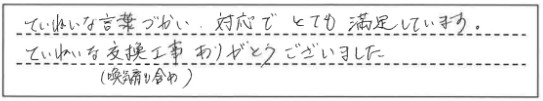 ていねいな言葉づかい、対応で とても 満足しています。
ていねいな交換工事 ありがとうございました
(換気扇も含め)